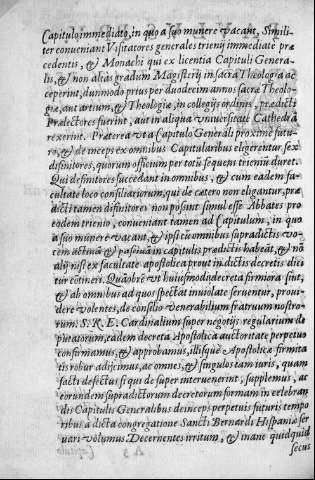 Capitulo immediato, in quo a suo munere vacant, Simili-
ter conueniant Visitatores generales trienij immediate præ
cedentis, & Monachi qui ex licentia Capituli Genera-
lis, & non alias gradum Magisterij in sacra Theologia ac
ceperint, dummodo prius per duodecim annos sacræ Theolo-
giæ, aut artium, & Theologiæ, in collegijs ordinis, prædicti
Prælectores fuerint, aut in aliqua vniuersitate Cathedrā
rexerint. Præterea vt a Capitulo Generali proxime futu-
ro, & deinceps ex omnibus Capitularibus eligerentur sex
difinitores, quorum officium per totū sequens trieniū duret.
Qui definitores succedant in omnibus, & cum eadem fa-
cultate loco consiliariorum, qui de cætero non eligantur, præ
dicti tamen difinitores non possint simul esse Abbates pro
eodem trienio, conueniant tamen ad Capitulum, in quo
a suo munere vacant, & ipsi cū omnibus supradictis vo-
cem actiuā & pasiuā in capitulis prædictis habeāt, & nō
alij nisi ex facultate apostolica prout in dictis decretis dici
tur cōtineri. Quāobrē vt huiusmodi decreta firmiora sint,
& ab omnibus ad quos spectat inuiolate seruentur, proui-
dere volentes, de consilio venerabilium fratruum nostro-
rum. S. R. E. Cardinalium super negotijs regularium de
putatorum, eadem decreta Apostolica auctoritate perpetuo
confirmamus, & approbamus, illisque Apostolicæ firmita
tis robur adijcimus, ac omnes, & singulos tam iuris, quam
facti defectus si qui de super interuenerint, supplemus, ac
eorundem supradictorum decretorum formam in celebran
dis Capitulis Generalibus deinceps perpetuis futuris tempo
ribus a dicta congregatione Sancti Bernardi Hispaniæ ser
uari volumus. Decernentes irritum, & inane quidquid
secus